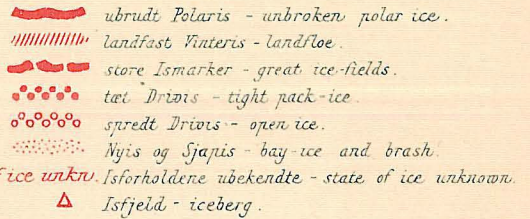 ubrudt Polaris - unbroken polar ice.
landfast Vinteris - landfloe.
store Ismarker - great ice-fields.
tæt Drivis - tight pack-ice.
spredt Drivis - open ice.
Nyis og Sjapis - bay-ice and brash.
ice unkn. Isforholdene ubekendte - state of ice unknown.
Isfjeld - iceberg.